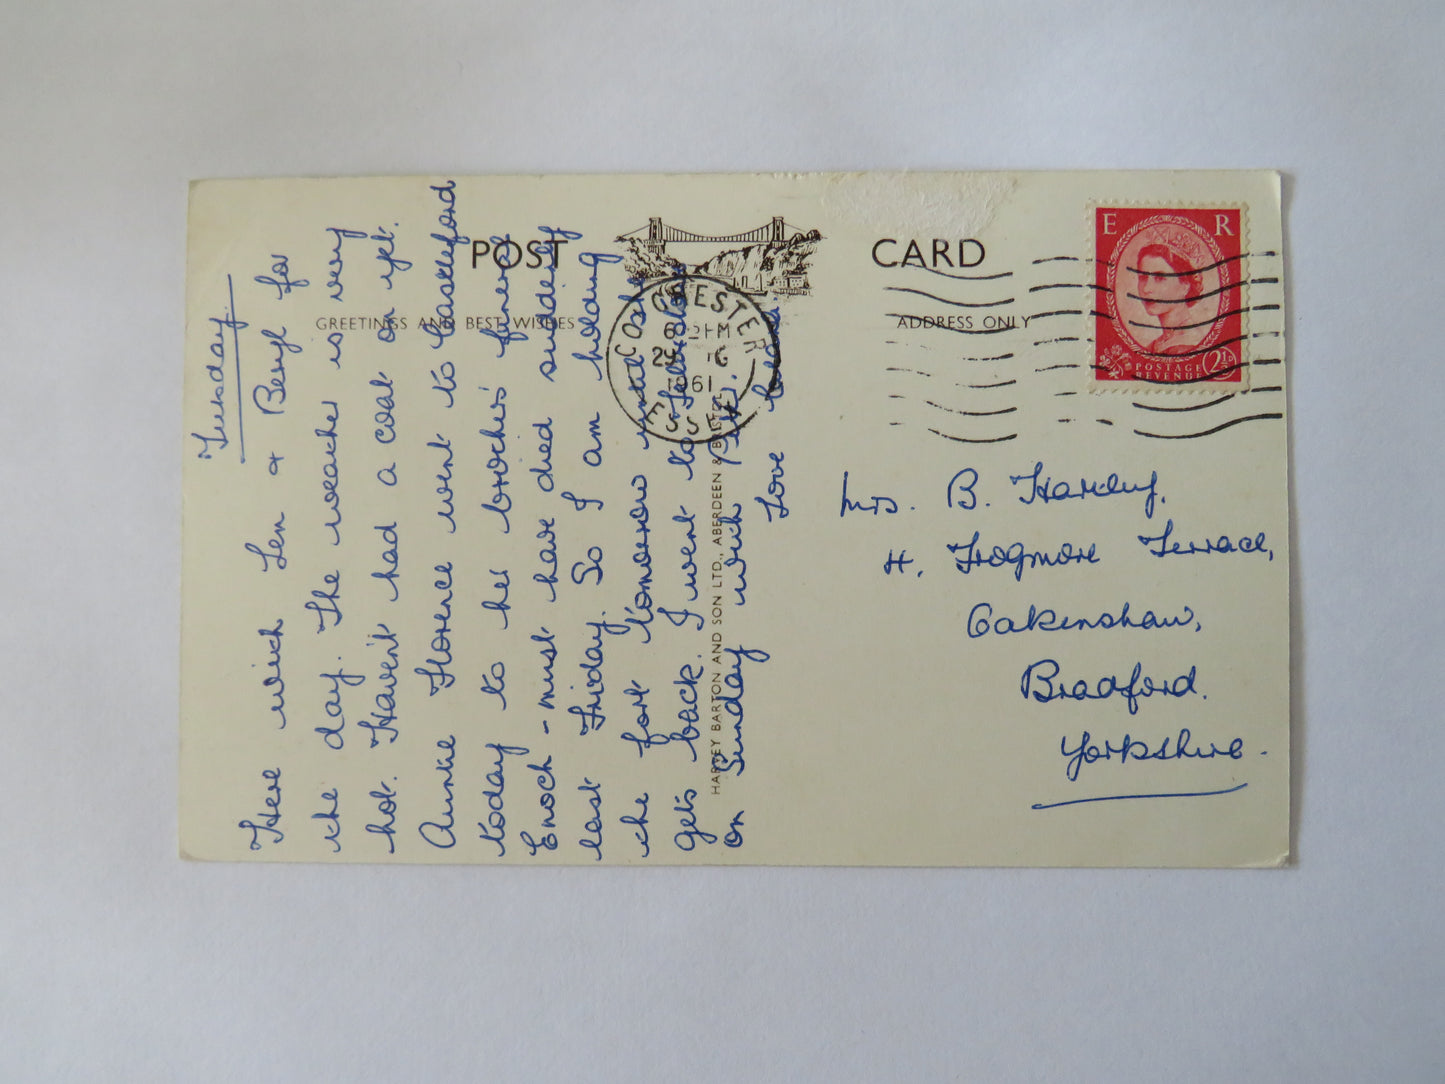 POST CARD
GREETINGS AND BEST WISHES
ADDRESS ONLY
HARVEY BARTON AND SON LTD., ABERDEEN & BRISTOL
COLCHESTER
ESSEX
1961
E R
POSTAGE
REVENUE
2½D
Tuesday
Here with Len & Beryl for
the day. The weather is very
hot. Haven't had a coat on yet.
Auntie Florence went to Castleford
today to her brothers' funeral
Enoch - must have died suddenly
last Friday. So I am holding
the fort tomorrow until she
gets back. I went to
on Sunday with
Love
Mrs. B. Hanley,
4, Frogmore Terrace,
Oakenshaw,
Bradford.
Yorkshire.